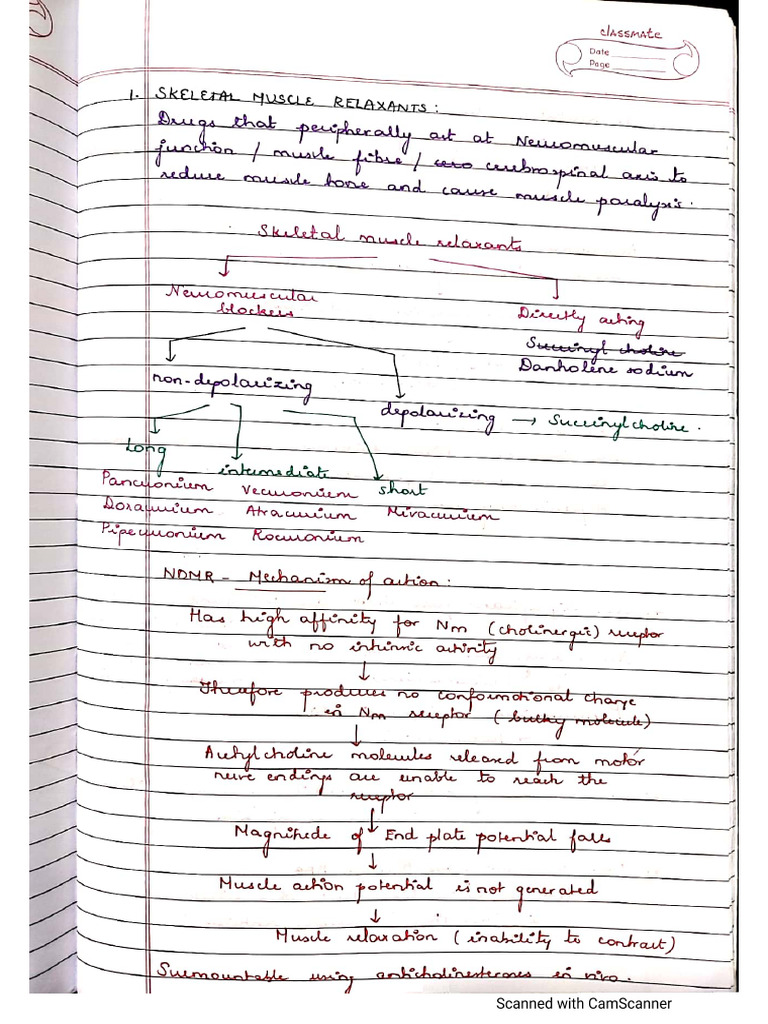 classmate
Date
Page
1. SKELETAL MUSCLE RELAXANTS :
Drugs that peripherally act at Neuromuscular
junction / muscle fibre / cero cerebrospinal axis to
reduce muscle tone and cause muscle paralysis.
Skeletal muscle relaxants
Neuromuscular
blockers
Directly acting
Succinyl choline
Dantrolene sodium
non-depolarizing
depolarizing → Succinylcholine.
Long
intermediate
short
Pancuronium Vecuronium
Doxacurium Atracurium Mivacurium
Pipecuronium Rocuronium
NDMR - Mechanism of action :
Has high affinity for Nm (cholinergic) receptor
with no intrinsic activity
↓
Therefore produces no conformational change
in Nm receptor (bulky molecule)
↓
Acetylcholine molecules released from motor
nerve endings are unable to reach the
receptor
↓
Magnitude of End plate potential falls
↓
Muscle action potential is not generated
↓
Muscle relaxation (inability to contract)
Surmountable using anticholinesterases in vivo.
Scanned with CamScanner